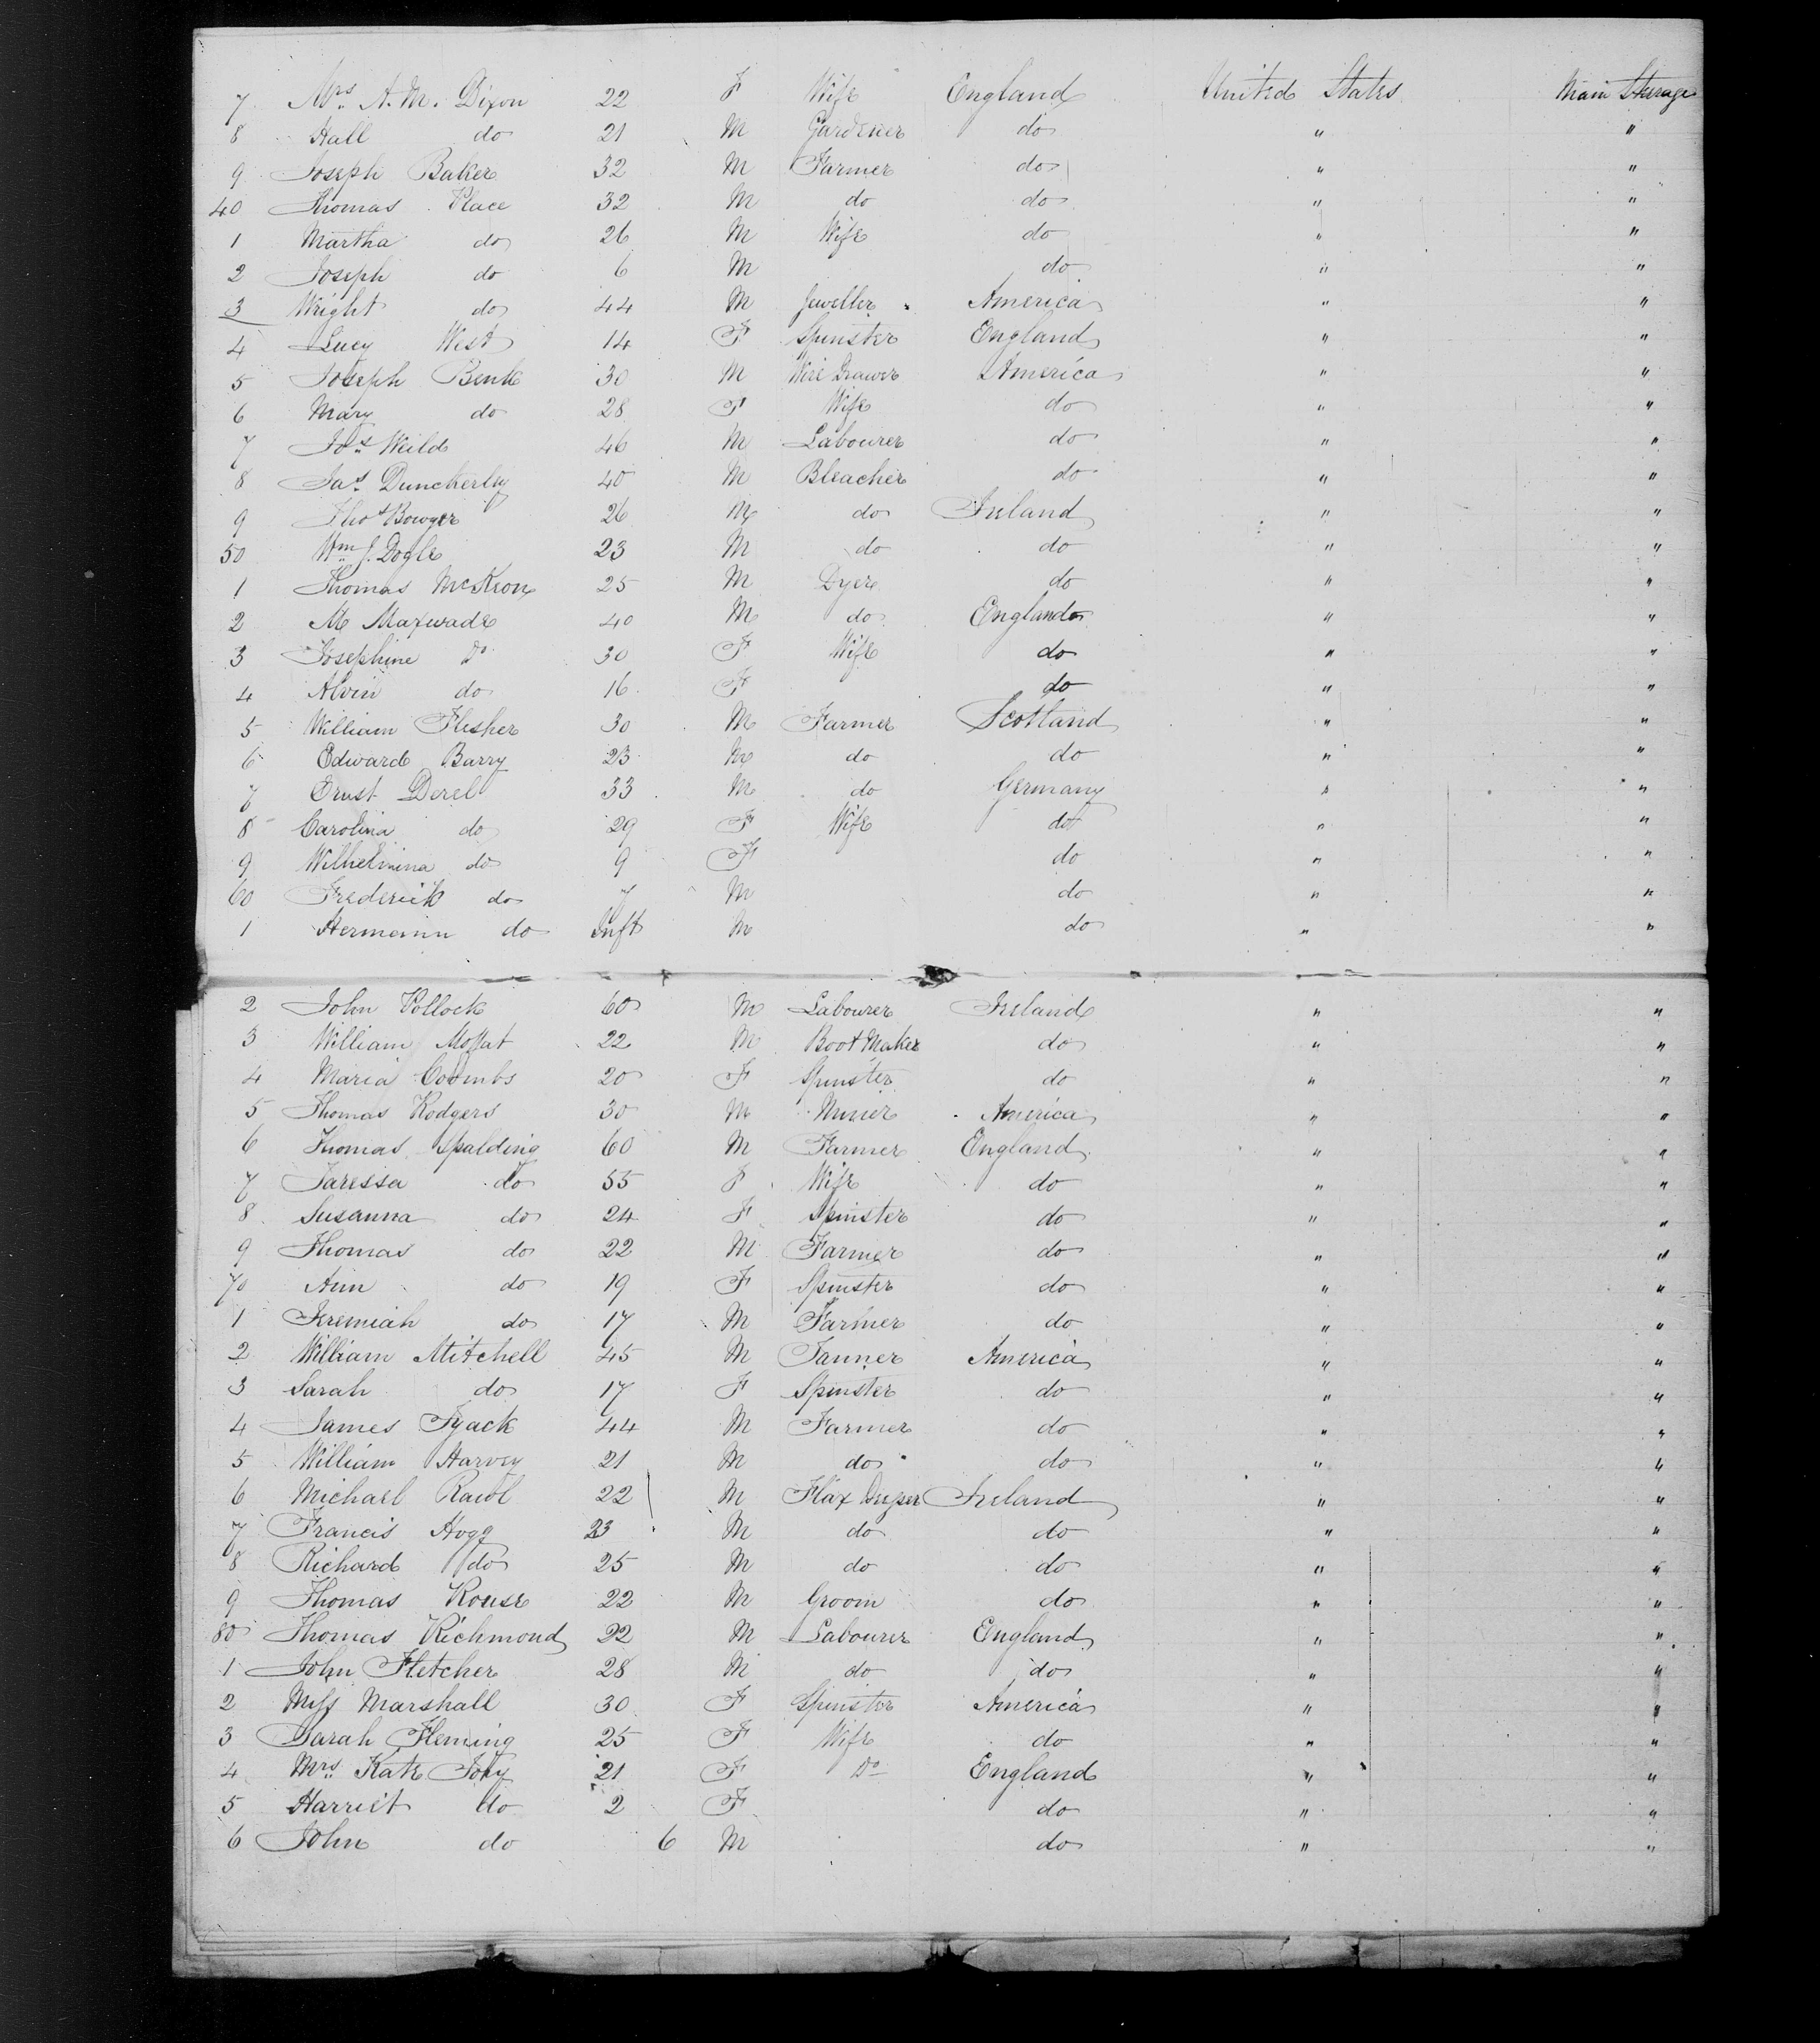 7 Mrs. A. M. Dixon 22 F Wife England United States Main Steerage
8 Hall do 21 M Gardener do " "
9 Joseph Baker 32 M Farmer do " "
40 Thomas Place 32 M do do " "
1 Martha do 26 M Wife do " "
2 Joseph do 6 M do " "
3 Wright do 44 M Jeweller America " "
4 Lucy West 14 F Spinster England " "
5 Joseph Bent 30 M Wire Drawer America " "
6 Mary do 28 F Wife do " "
7 Jos. Weild 46 M Labourer do " "
8 Jas. Duncherly 40 M Bleacher do " "
9 Thos Bowyer 26 M do Ireland " "
50 Wm J. Dogle 23 M do do " "
1 Thomas McKeon 25 M Dyer do " "
2 M Maxwade 40 M do England " "
3 Josephine Do 30 F Wife do " "
4 Alvin do 16 F do " "
5 William Flesher 30 M Farmer Scotland " "
6 Edward Barry 23 M do do " "
7 Ernst Derel 33 M do Germany " "
8 Carolina do 29 F Wife do " "
9 Wilhelmina do 9 F do " "
60 Frederick do 7 M do " "
1 Hermann do Inft M do " "
2 John Pollock 60 M Labourer Ireland " "
3 William Moffat 22 M Boot Maker do " "
4 Maria Coombs 20 F Spinster do " "
5 Thomas Rodgers 30 M Miner America " "
6 Thomas Spalding 60 M Farmer England " "
7 Taressa do 55 F Wife do " "
8 Susanna do 24 F Spinster do " "
9 Thomas do 22 M Farmer do " "
70 Ann do 19 F Spinster do " "
1 Jeremiah do 17 M Farmer do " "
2 William Mitchell 45 M Tanner America " "
3 Sarah do 17 F Spinster do " "
4 James Tyack 44 M Farmer do " "
5 William Harvey 21 M do do " "
6 Michael 22 M Flax Ireland " "
7 Francis Hogg 23 M do do " "
8 Richard do 25 M do do " "
9 Thomas Rouse 22 M Groom do " "
80 Thomas Richmond 22 M Labourer England " "
1 John Fletcher 28 M do do " "
2 Miss Marshall 30 F Spinster America " "
3 Sarah Fleming 25 F Wife do " "
4 Mrs. Kate 21 F Do England " "
5 Harriet do 2 F do " "
6 John do 6 M do " "